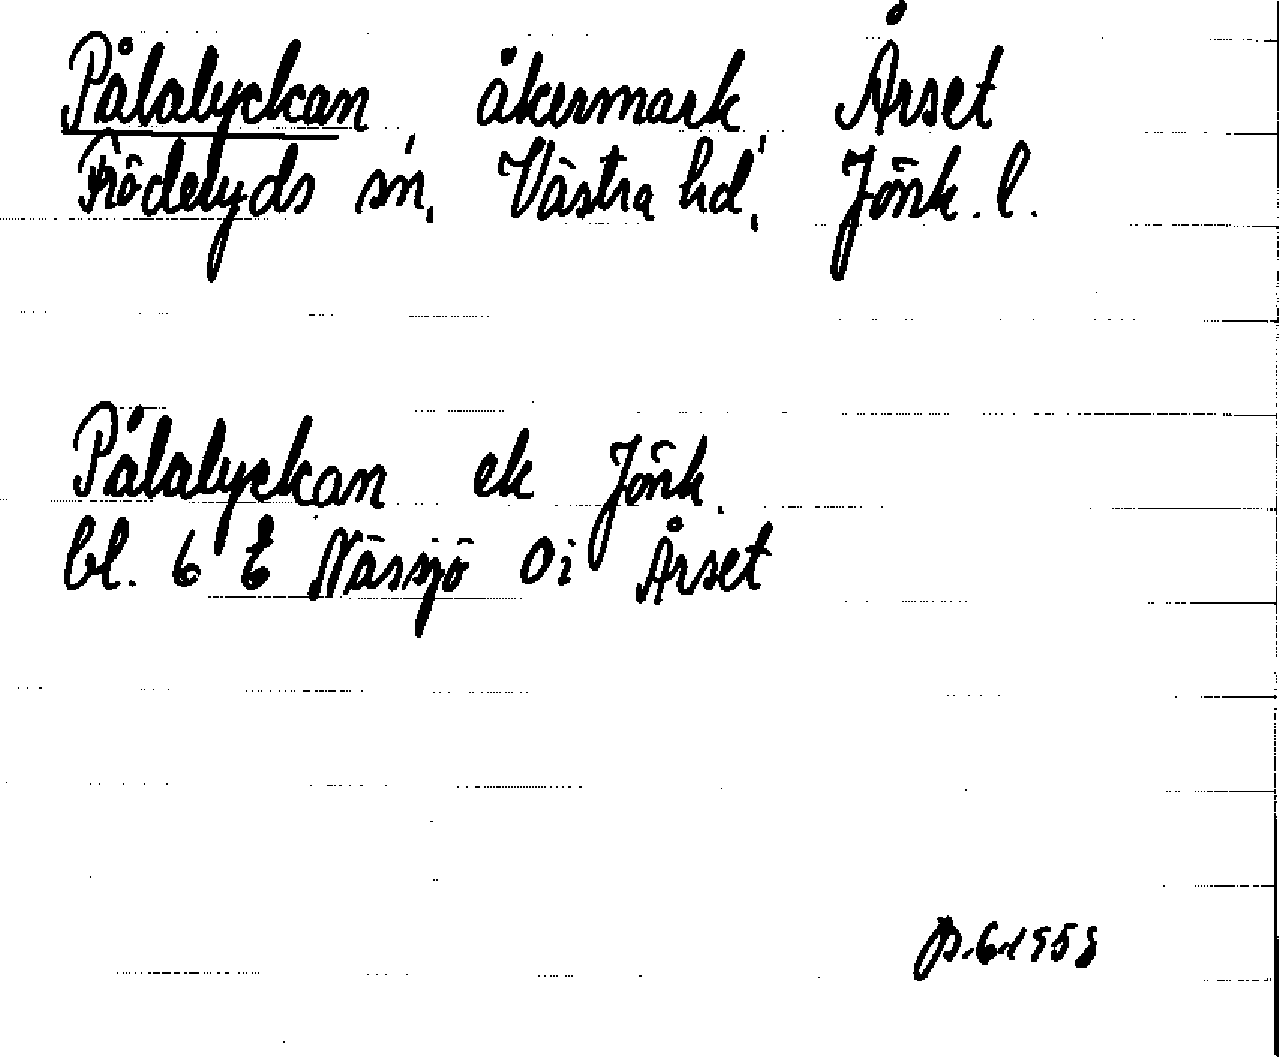 Pålalyckan, åkermark, Årset
Fröderyds sn, Västra hd, Jönk. l.
Pålalyckan ek Jönk.
bl. 6 E Nässjö 0i Årset
6.1958